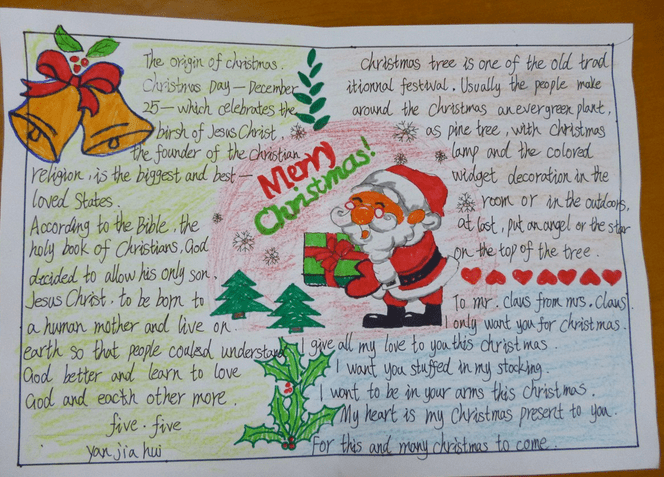 The origin of christmas.
Christmas Day — December
25 — which celebrates the
birsh of Jesus Christ,
the founder of the Christian
religion, is the biggest and best—
loved States.
According to the Bible, the
holy book of Christians, God
decided to allow his only son,
Jesus Christ, to be born to
a human mother and live on
earth so that people could understand
God better and learn to love
God and eacth other more.
five . five
yan jia hui
Merry
Christmas!
Christmas tree is one of the old trad
itionnal festival. Usually the people make
around the Christmas an evergreen plant,
as pine tree, with christmas
lamp and the colored
widget decoration in the
room or in the outdoors,
at last, put an angel or the star
on the top of the tree.
To mr. claus from mrs. Claus.
I only want you for christmas.
I give all my love to you this christmas.
I want you stuffed in my stocking.
I want to be in your arms this christmas.
My heart is my Christmas present to you.
For this and many christmas to come.